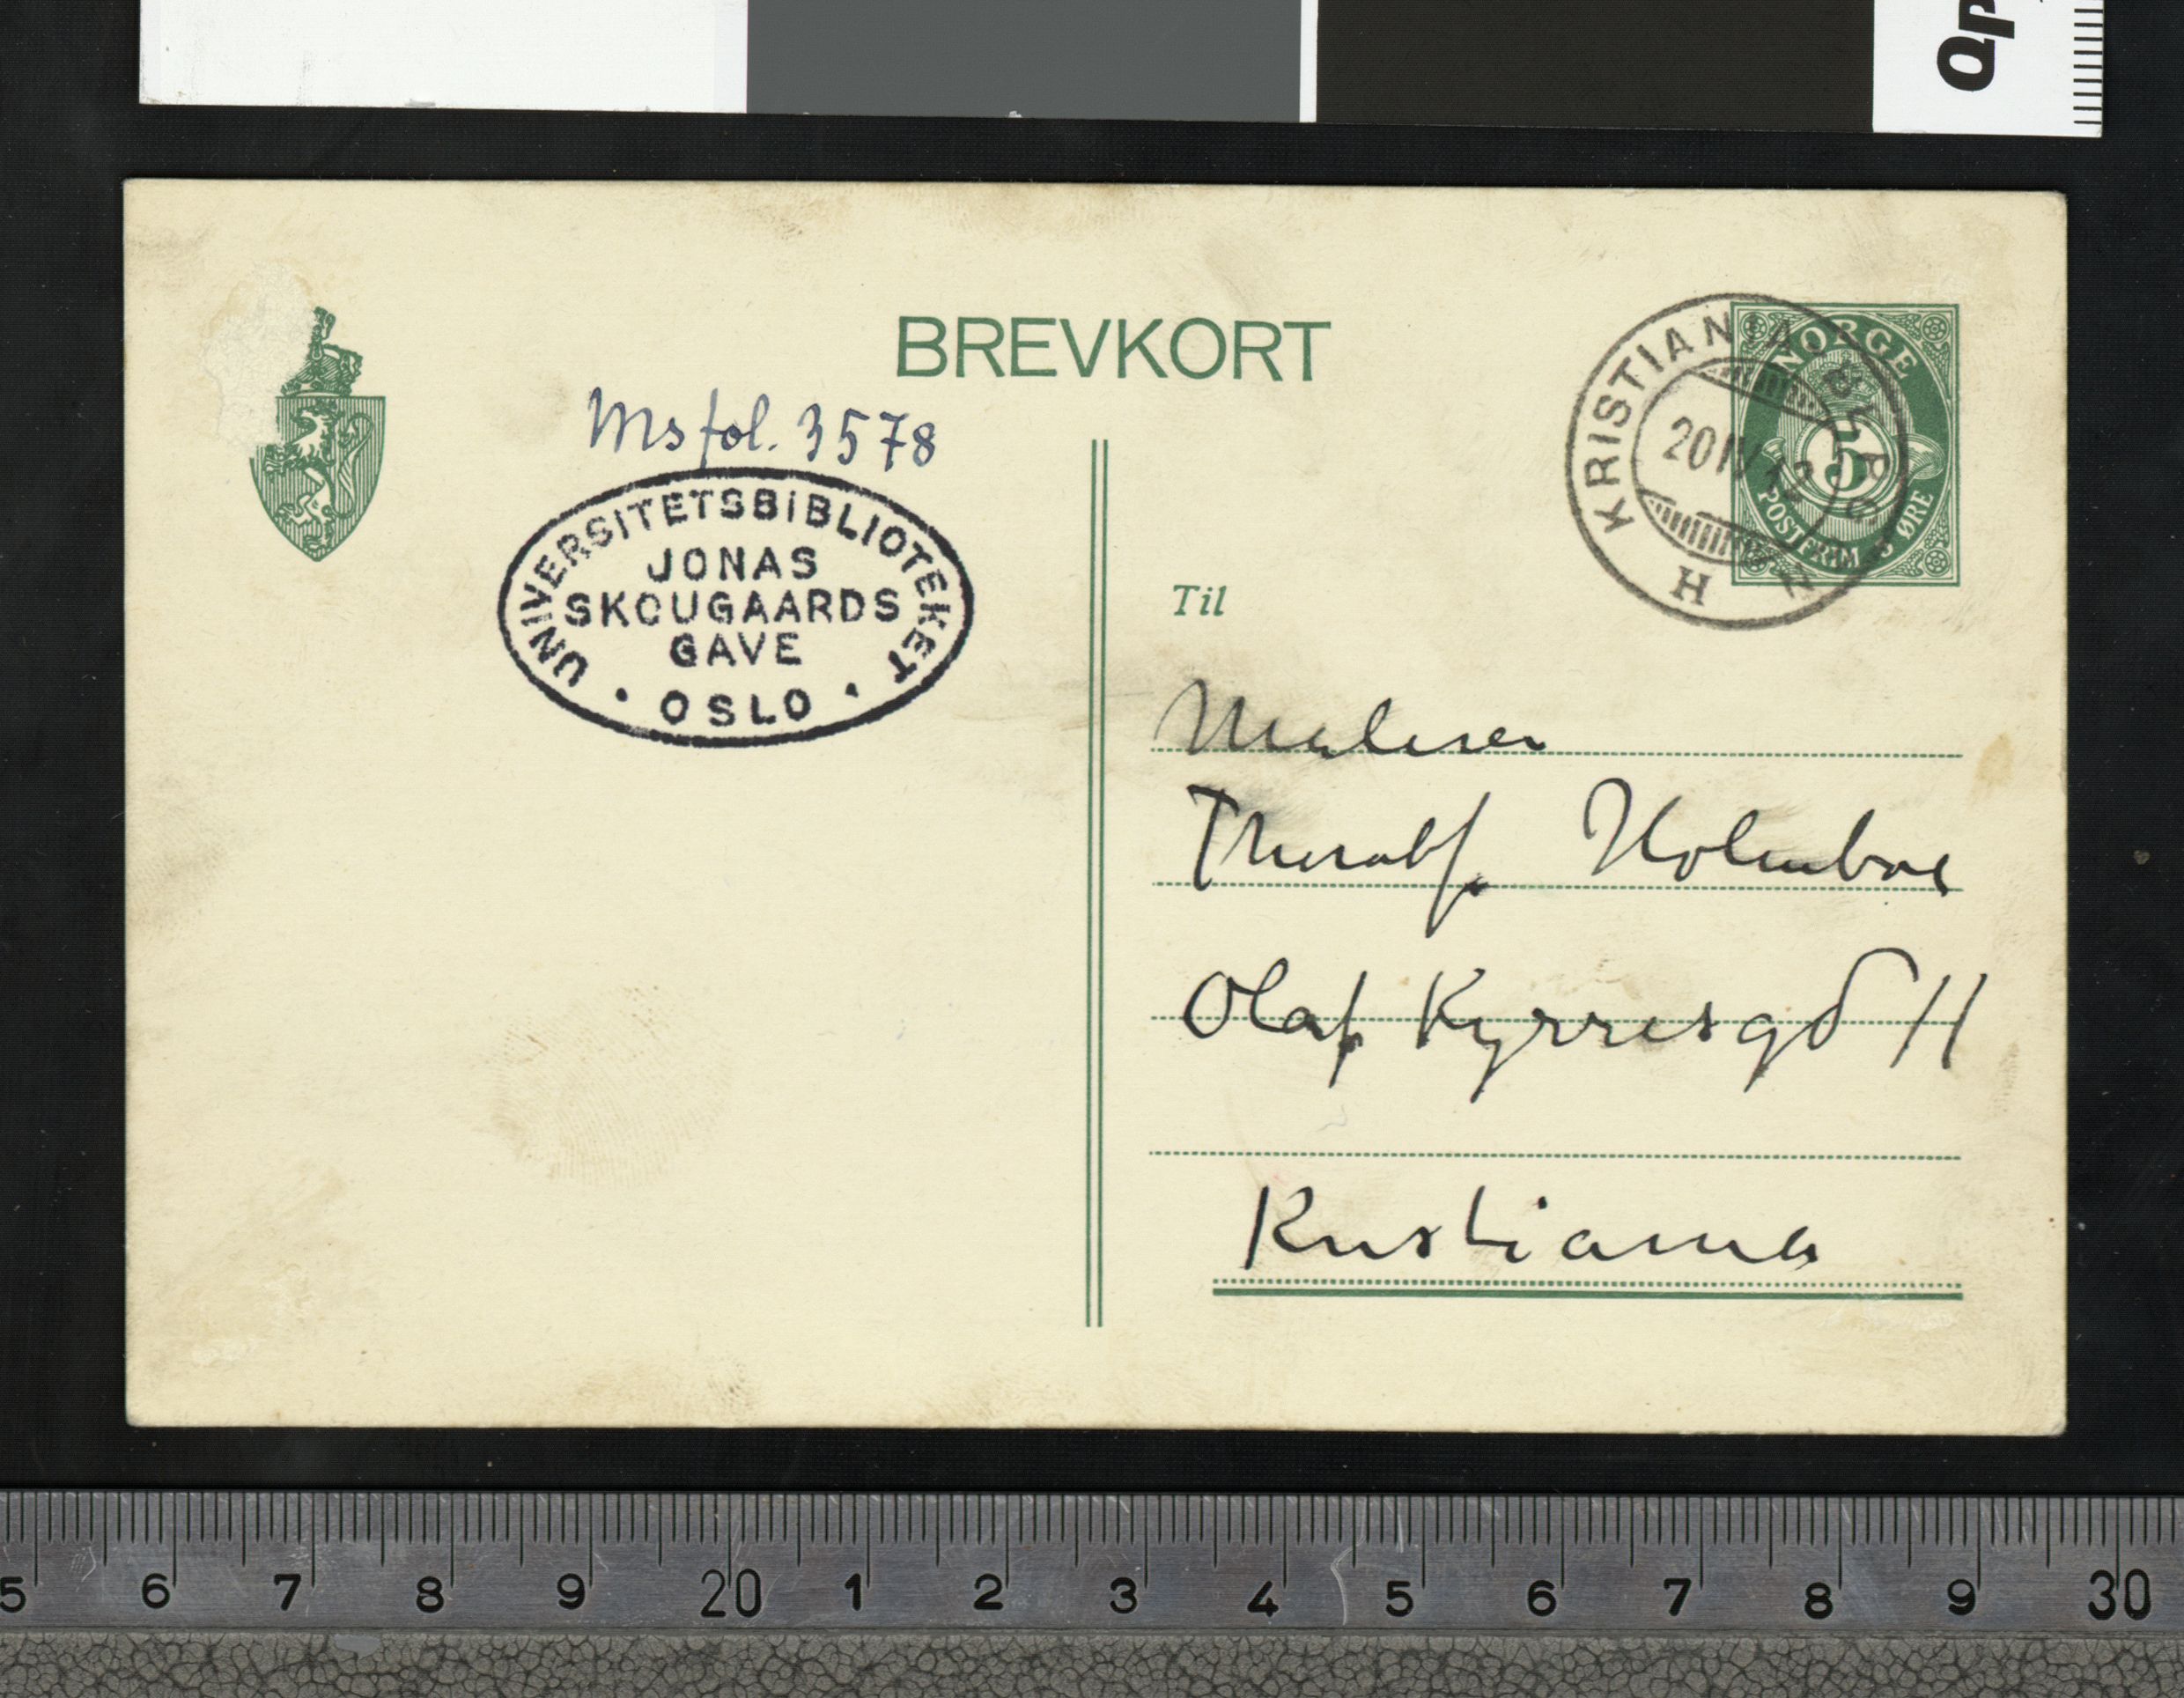 Qp
BREVKORT
Ms fol. 3578
UNIVERSITETSBIBLIOTEKET
JONAS
SKOUGAARDS
GAVE
OSLO
KRISTIANIA
20 IV 13
H N
NORGE
5
POSTFRIM 5 ØRE
Til
Maleren
Thorolf Holmboe
Olaf Kyrresgd 11
Kristiania
5 6 7 8 9 20 1 2 3 4 5 6 7 8 9 30